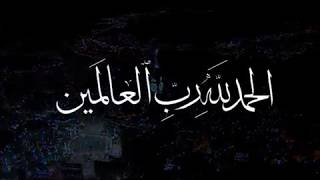 الحمد لله رَبِّ ٱلۡعَالَمِين